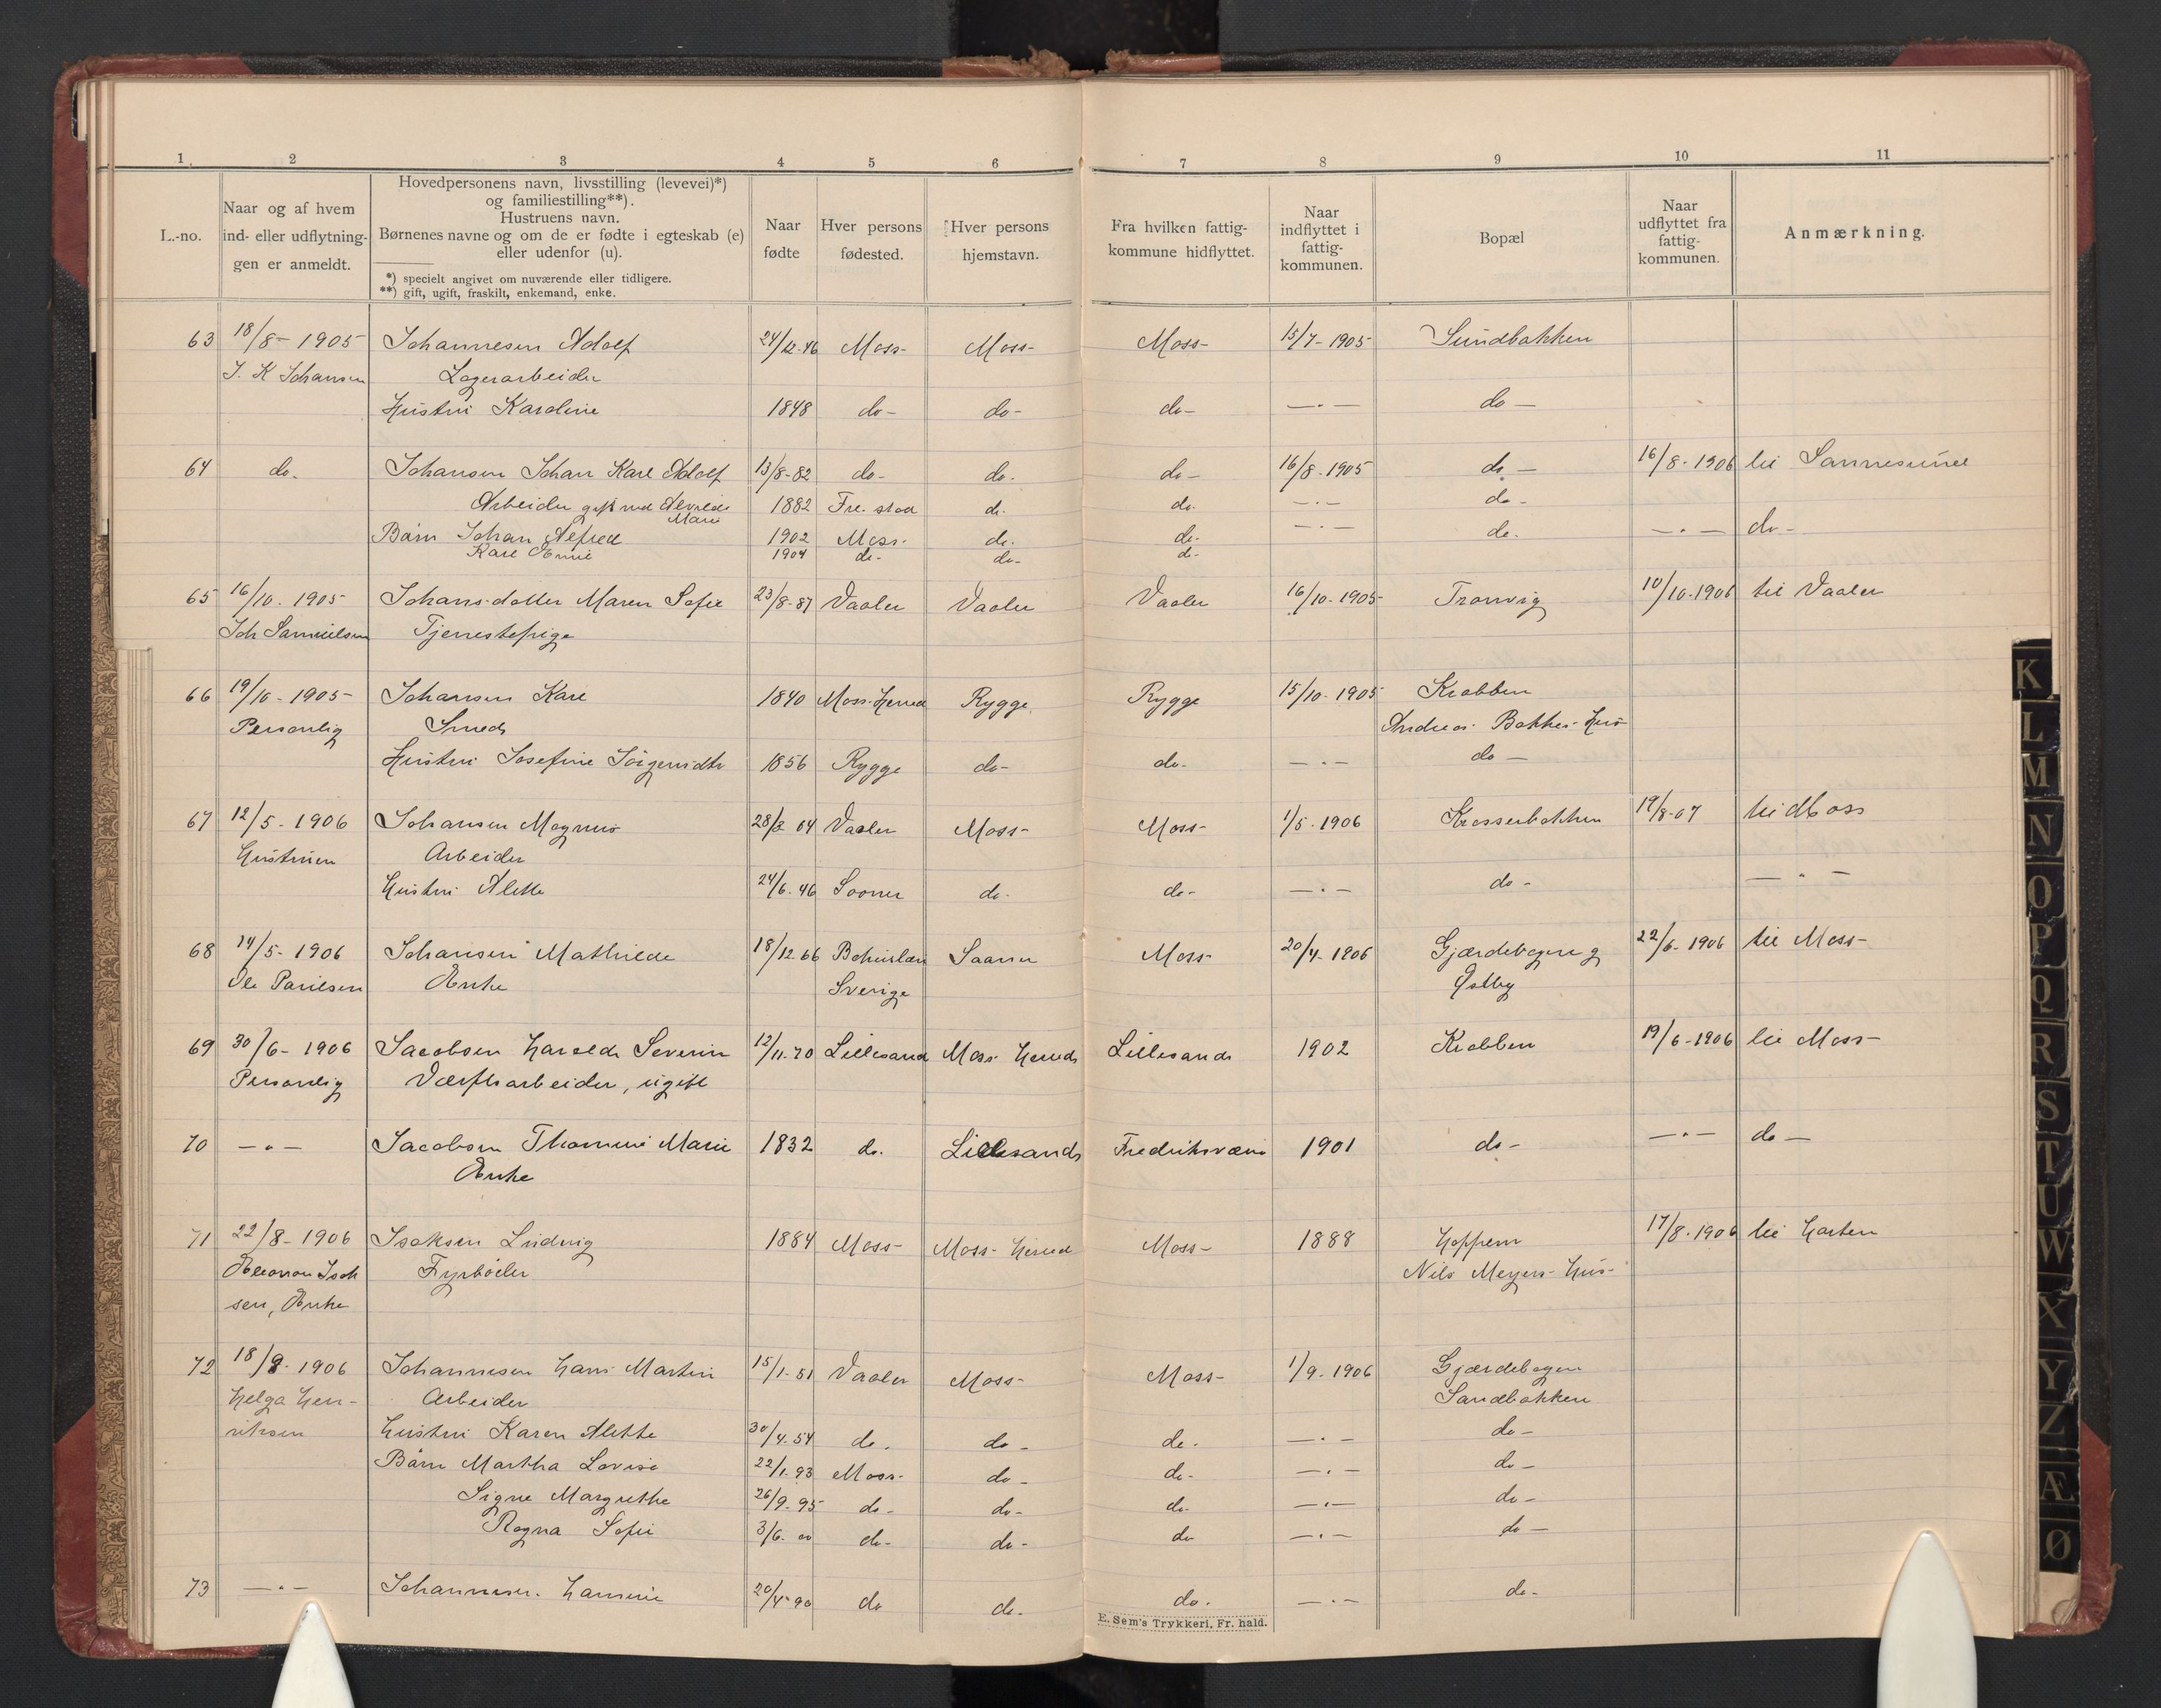 1 2 3 4 5 6 7 8 9 10 11
L.-no.
Naar og af hvem
ind- eller udflytnin-
gen er anmeldt.
Hovedpersonens navn, livsstilling (levevei)*)
og familiestilling**).
Hustruens navn.
Børnenes navne og om de er fødte i egteskab (e)
eller udenfor (u).
*) specielt angivet om nuværende eller tidligere.
**) gift, ugift, fraskilt, enkemand, enke.
Naar
fødte
Hver persons
fødested.
Hver persons
hjemstavn.
Fra hvilken fattig-
kommune hidflyttet.
Naar
indflyttet i
fattig-
kommunen.
Bopæl
Naar
udflyttet fra
fattig-
kommunen.
Anmærkning.
63 18/8- 1905 Johannesen Adolf 24/12-46 Moss- Moss- Moss- 15/7-1905 Sundbakken
J. K Johansen Lagerarbeider
Hustru Karoline 1848 do- do- do- —"— do—
64 do. Johansen Johan Karl Adolf 13/8-82 do- do. do- 16/8-1905 do— 16/8-1906 til Sannesund
Arbeider gift med Marie 1882 Fre.stad do. do. —"— do-
Børn Johan Alfred 1902 Moss- do. do- —"— do. —"— do-
Karl 1904 do- do- do-
65 16/10. 1905 Johansdatter Maren Sofie 23/8-87 Vaaler Vaaler Vaaler 16/10-1905 Tronvig 10/10-1906 til Vaaler
Joh Samuelsen Tjenestepige
66 19/10-1905- Johansen Karl 1840 Moss-Herred Rygge Rygge 15/10-1905 Krabben
Personlig Smed Andreas Bakkes-Hus
Hustru Josefine Jörgensdtr 1856 Rygge do- do- —"— do—
67 12/5-1906 Johansen Magnus 28/3 04 Vaaler Moss- Moss- 1/5-1906 Krosserbakken 19/8-07 til Moss
Hustruen Arbeider
Hustru Alette 24/6-46 Sooner do- do- —"— do- —"—
68 14/5-1906 Johansen Mathilde 18/12 66 Bohuslen Saaner Moss- 20/4-1906 Gjærdebogen g 22/6-1906 til Moss-
Ole Paulsen Enke Sverige Østby
69 30/6-1906 Jacobsen Harald Severin 12/11-70 Lillesand Moss Herred Lillesand 1902 Krabben 19/6-1906 til Moss-
Personlig Værftsarbeider, ugift
70 —"— Jacobsen Thomine Marie 1832 do. Lillesand Fredriksværn 1901 do- —"— do—
Enke
71 22/8-1906 Isaksen Ludvig 1884 Moss- Moss-Herred Moss- 1888 Hoppern 17/8-1906 til Horten
Eleonora Isak Fyrbøder Nils Meyers-Hus-
sen, Enke
72 18/9-1906 Johannesen Hans Martin 15/1-51 Vaaler Moss- Moss- 1/9-1906 Gjærdebogen
Helga Hen- Arbeider Sandbakken
riksen Hustru Karen Alette 30/4-54 do. do- do- —"— do-
Børn Martha Lovise 22/1-93 Moss- do- do- —"— do-
Signe Margrethe 26/9-95 do- do- do- —"— do-
Ragna Sofie 3/6-00 do- do- do —"— do—
73 —"— Johannesen. Hansine 20/4-90 do do. do. —"— do-
E. Sem's Trykkeri, Fr.hald.
K
L
M
N
O
P
Q
R
S
T
U
W
X
Y
Z
Æ
Ø